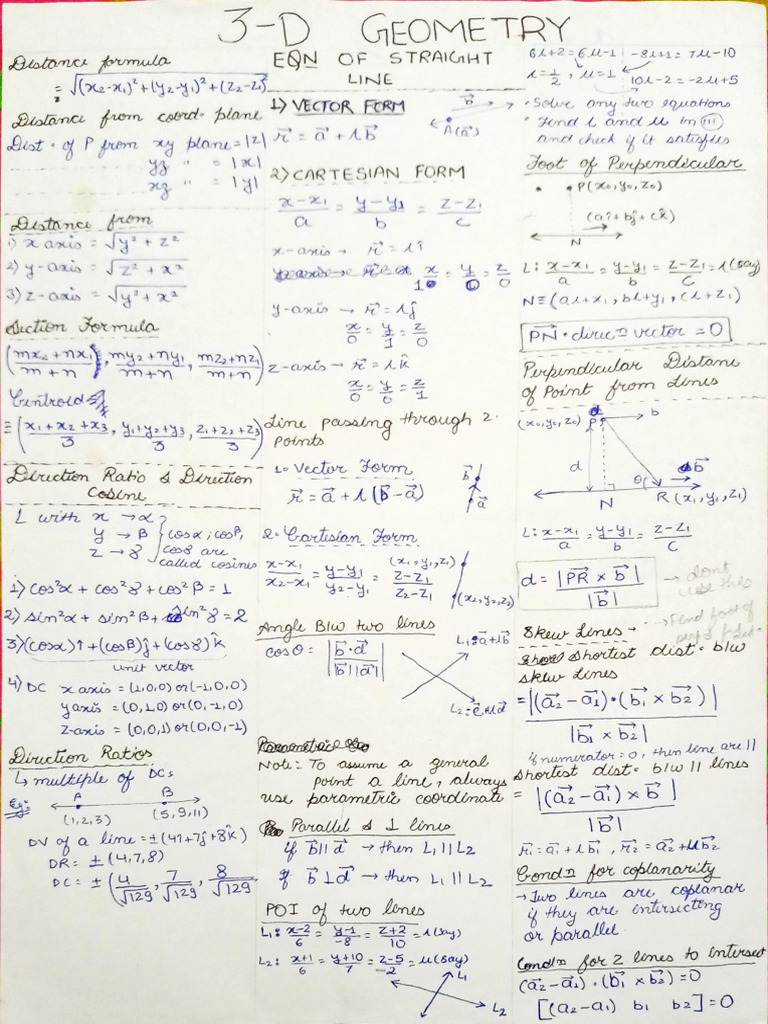 3-D GEOMETRY
Distance formula
= √(x₂-x₁)²+(y₂-y₁)²+(z₂-z₁)²
Distance from coord. plane
Dist. of P from xy plane = |z|
yz " = |x|
xz " = |y|
Distance from
1) x axis = √y²+z²
2) y-axis = √z²+x²
3) z-axis = √y²+x²
Section Formula
(mx₂+nx₁/m+n, my₂+ny₁/m+n, mz₂+nz₁/m+n)
Centroid
≡ (x₁+x₂+x₃/3, y₁+y₂+y₃/3, z₁+z₂+z₃/3)
Direction Ratio & Direction
Cosine
L with x → α
y → β
z → γ
cosα, cosβ,
cosγ are
called cosines
1) cos²α + cos²γ + cos²β = 1
2) sin²α + sin²β + sin²γ = 2
3) (cosα)î + (cosβ)ĵ + (cosγ)k̂
unit vector
4) DC x axis = (1,0,0) or (-1,0,0)
y axis = (0,1,0) or (0,-1,0)
z-axis = (0,0,1) or (0,0,-1)
Direction Ratios
↳ multiple of DCs
Eg:-
A B
(1,2,3) (5,9,11)
DV of a line = ±(4î+7ĵ+8k̂)
DR = ±(4,7,8)
DC = ±(4/√129, 7/√129, 8/√129)
EQN OF STRAIGHT
LINE
1) VECTOR FORM
b⃗
A(a⃗)
r⃗ = a⃗ + λb⃗
2) CARTESIAN FORM
x-x₁/a = y-y₁/b = z-z₁/c
x-axis → r⃗ = λî
x/1 = y/0 = z/0
y-axis → r⃗ = λĵ
x/0 = y/1 = z/0
z-axis → r⃗ = λk̂
x/0 = y/0 = z/1
Line passing through 2
points
1. Vector Form
r⃗ = a⃗ + λ(b⃗-a⃗)
b⃗
a⃗
2. Cartesian Form
x-x₁/x₂-x₁ = y-y₁/y₂-y₁ = z-z₁/z₂-z₁
(x₁,y₁,z₁)
(x₂,y₂,z₂)
Angle B/w two lines
cosθ = |b⃗·d⃗/|b⃗||d⃗||
L₁: a⃗+λb⃗
L₂ = c⃗+μd⃗
Note:- To assume a general
point a line, always
use parametric coordinate
Parallel & ⊥ lines
if b⃗||d⃗ → then L₁||L₂
if b⃗⊥d⃗ → then L₁||L₂
POI of two lines
L₁: x-2/6 = y-1/-8 = z+2/10 = λ(say)
L₂: x+1/6 = y+10/7 = z-5/-2 = μ(say)
L₁
L₂
6λ+2=6μ-1 -8λ+1=7μ-10
λ=1/2, μ=1 10λ-2=-2μ+5
• Solve any two equations
• Find λ and μ in (iii)
and check if it satisfies
Foot of Perpendicular
P(x₀,y₀,z₀)
(aî+bĵ+ck̂)
N
L: x-x₁/a = y-y₁/b = z-z₁/c = λ(say)
N≡(aλ+x₁, bλ+y₁, cλ+z₁)
PN⃗·direcⁿ vector = 0
Perpendicular Distan
of Point from Lines
(x₀,y₀,z₀) P b
d θ b⃗
N R(x₁,y₁,z₁)
L: x-x₁/a = y-y₁/b = z-z₁/c
d = |PR⃗ × b⃗|/|b⃗| → dont
use this
→ Find foot of
Skew Lines →
Shortest dist. b/w
skew lines
= |(a₂⃗-a₁⃗)·(b₁⃗×b₂⃗)|/|b₁⃗×b₂⃗|
if numerator=0, then line are ||
Shortest dist. b/w || lines
= |(a₂⃗-a₁⃗)×b⃗|/|b⃗|
r₁⃗=a₁⃗+λb₁⃗, r₂⃗=a₂⃗+μb₂⃗
Condⁿ for coplanarity
→ Two lines are coplanar
if they are intersecting
or parallel.
Condⁿ for 2 lines to intersect
(a₂⃗-a₁⃗)·(b₁⃗×b₂⃗)=0
[(a₂-a₁) b₁ b₂]=0